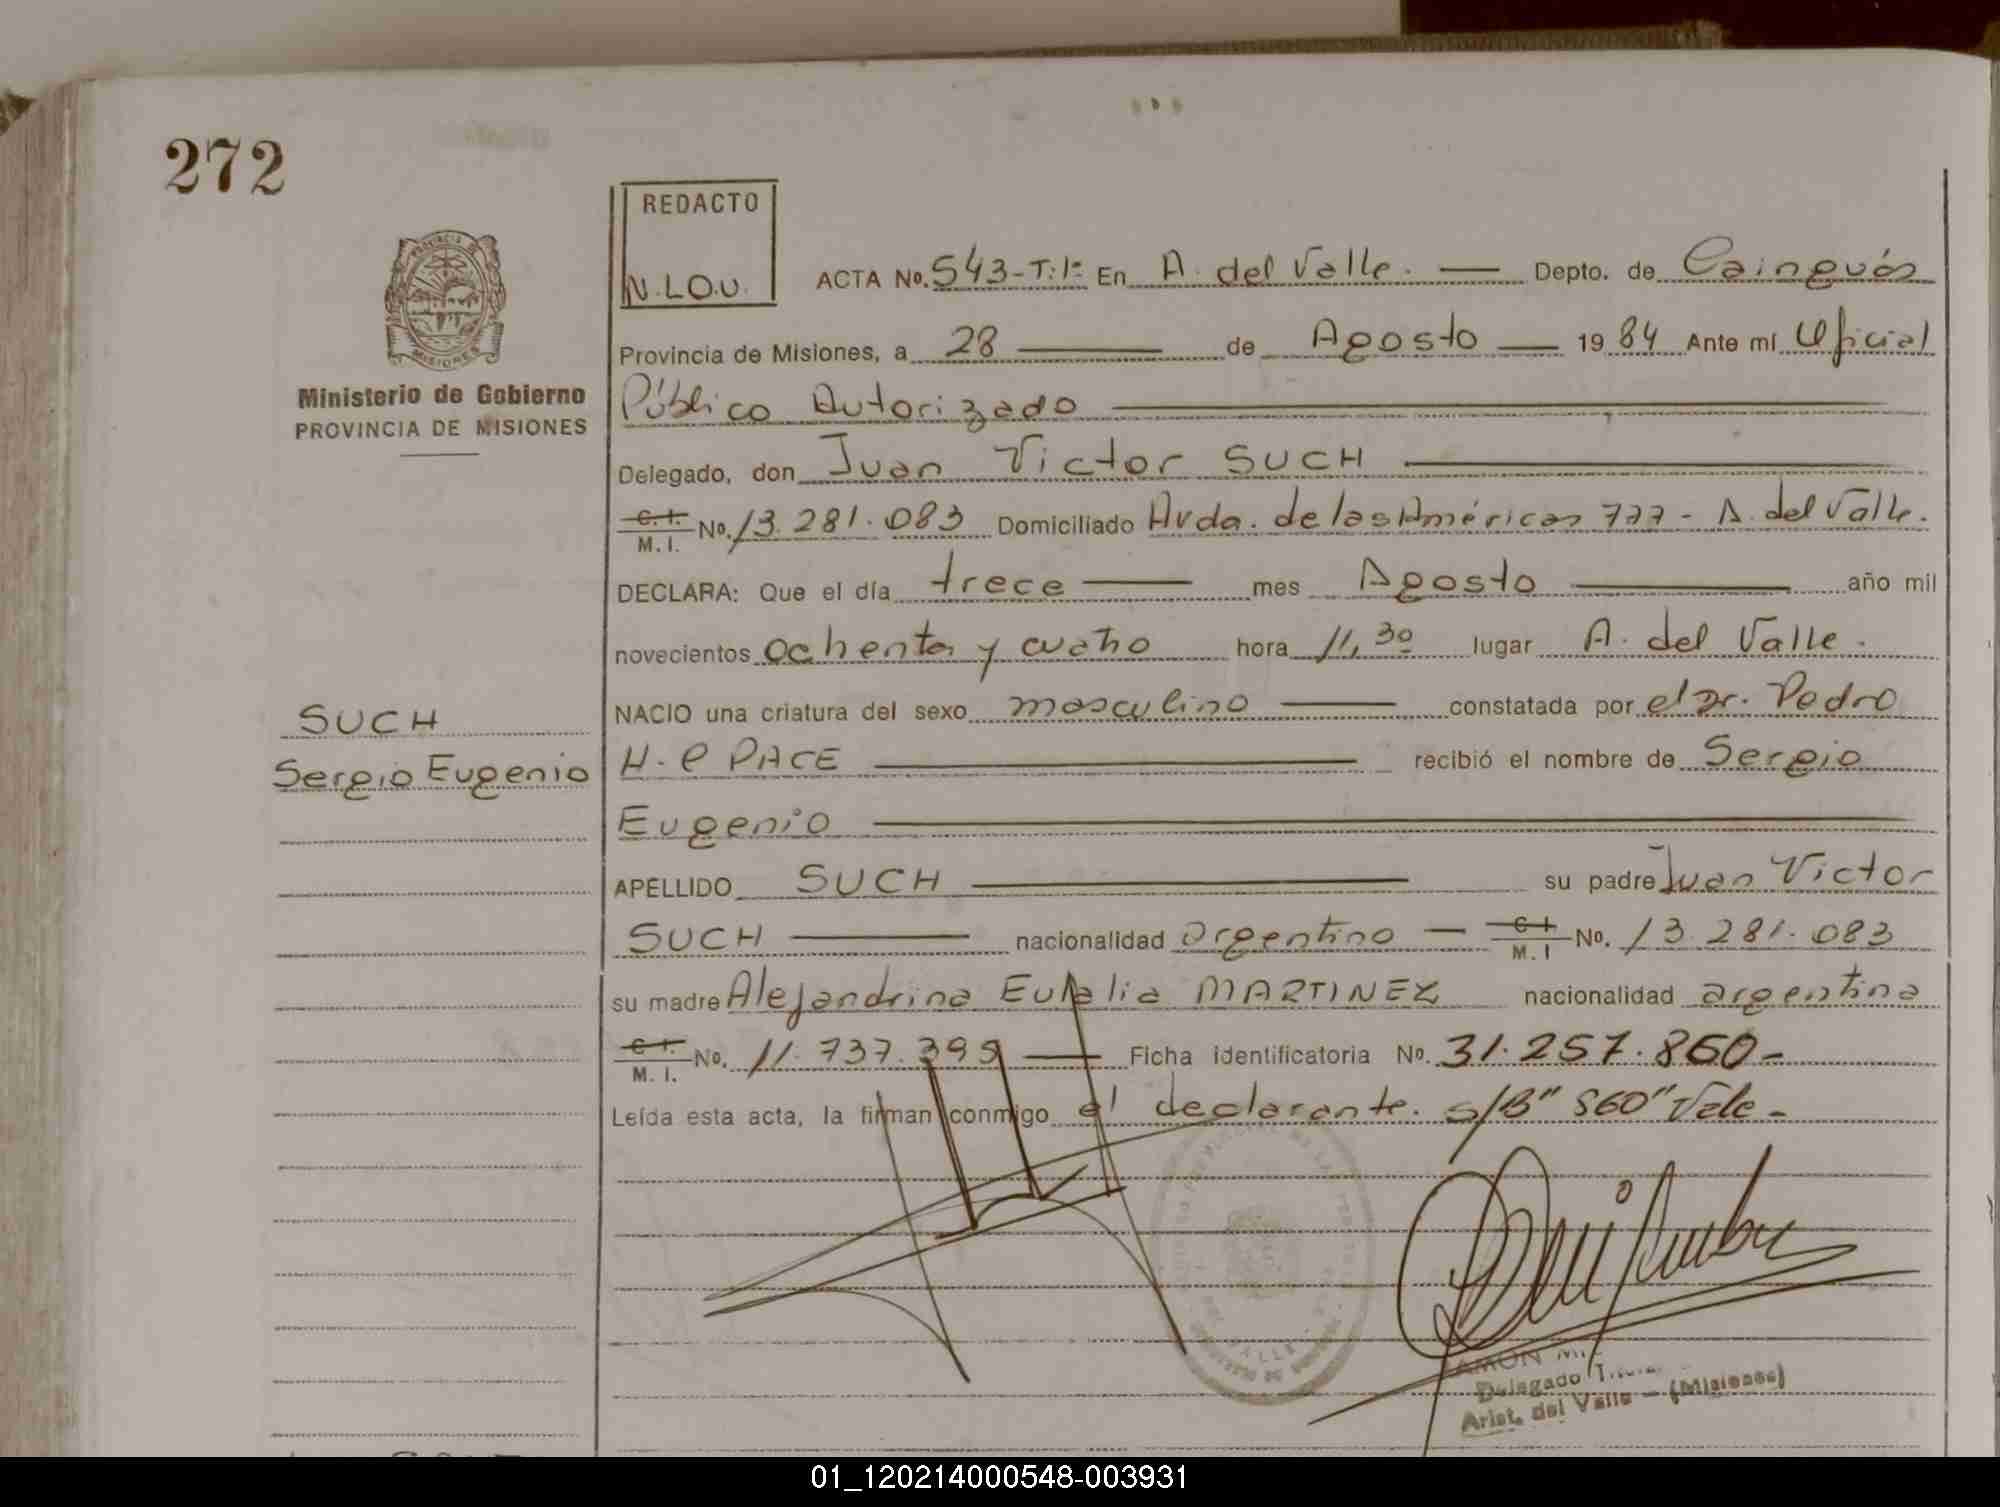 272
REDACTO
N.L.O.U.
PROVINCIA DE
MISIONES
Ministerio de Gobierno
PROVINCIA DE MISIONES
ACTA No. 543-T:1º En A. del Valle. — Depto. de Cainguás
Provincia de Misiones, a 28 — de Agosto — 1984 Ante mí Oficial
Público Autorizado
Delegado, don Juan Victor SUCH
C. I. / M. I. No. 13.281.083 Domiciliado Avda. de las Américas 777 - A. del Valle.
DECLARA: Que el día trece — mes Agosto — año mil
novecientos ochenta y cuatro hora 11,30 lugar A. del Valle.
NACIO una criatura del sexo masculino — constatada por el Dr. Pedro
H. C PACE — recibió el nombre de Sergio
Eugenio
APELLIDO SUCH — su padre Juan Victor
SUCH — nacionalidad argentino — C. I. / M. I No. 13.281.083
su madre Alejandrina Eulalia MARTINEZ nacionalidad argentina
C. I. / M. I. No. 11.737.399 — Ficha identificatoria No. 31.257.860-
Leída esta acta, la firman conmigo el declarante. s/B" 860" Vale-
SUCH
Sergio Eugenio
Delegado
Arist. del Valle — (Misiones)
01_120214000548-003931